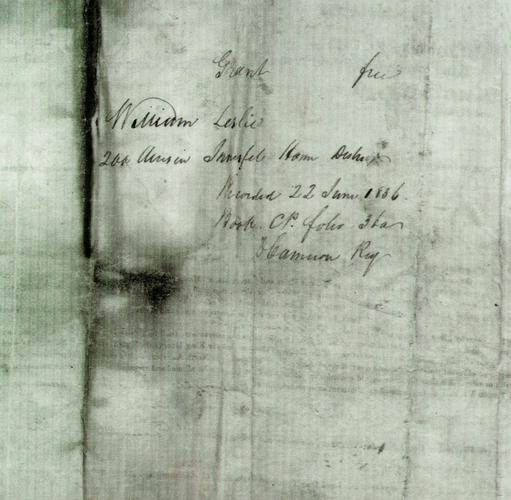 Grant free
William Leslie
200 Acres in Innisfil Home District
Recorded 22 June 1836.
Book CP. folio
D Cameron Reg